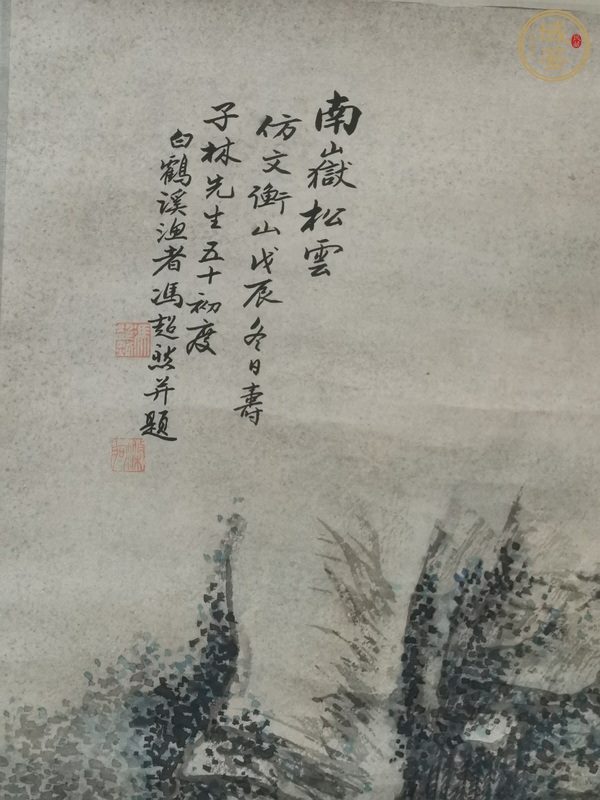 南嶽松雲
仿文衡山戊辰冬日壽
子林先生五十初度
白鶴溪漁者馮超然并題